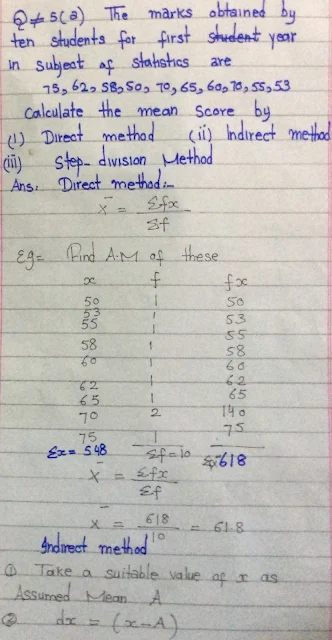 Q≠5(a) The marks obtained by
ten students for first student year
in subject of statistics are
75, 62, 58, 50, 70, 65, 60, 70, 55, 53
Calculate the mean score by
(i) Direct method (ii) Indirect method
(iii) Step-division Method
Ans: Direct method:-
x̄ = Σfx
Σf
Eg= Find A.M of these
x f fx
50 1 50
53 1 53
55 1 55
58 1 58
60 1 60
62 1 62
65 1 65
70 2 140
75 1 75
Σx= 548 Σf=10 618
x̄ = Σfx
Σf
x̄ = 618 = 61.8
10
Indirect method
① Take a suitable value of x as
Assumed Mean A
② dx = (x-A)